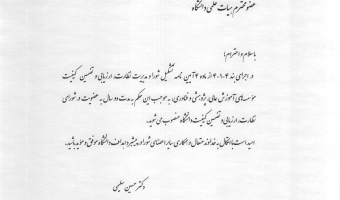 عضو محترم هیات علمی دانشگاه
با سلام و احترام؛
در اجرای بند ۲-۱-۴ از ماده ۲ آیین نامه تشکیل شورا و مدیریت نظارت، ارزیابی و تضمین کیفیت
مؤسسه‌های آموزش عالی، پژوهشی و فناوری، به موجب این حکم به مدت دو سال به عضویت در شورای
نظارت، ارزیابی و تضمین کیفیت دانشگاه منصوب می‌شوید.
امید است با اتکال به خداوند متعال و همکاری سایر اعضای شورا در پیشبرد اهداف دانشگاه موفق و مؤید باشید.
دکتر حسین سلیمی